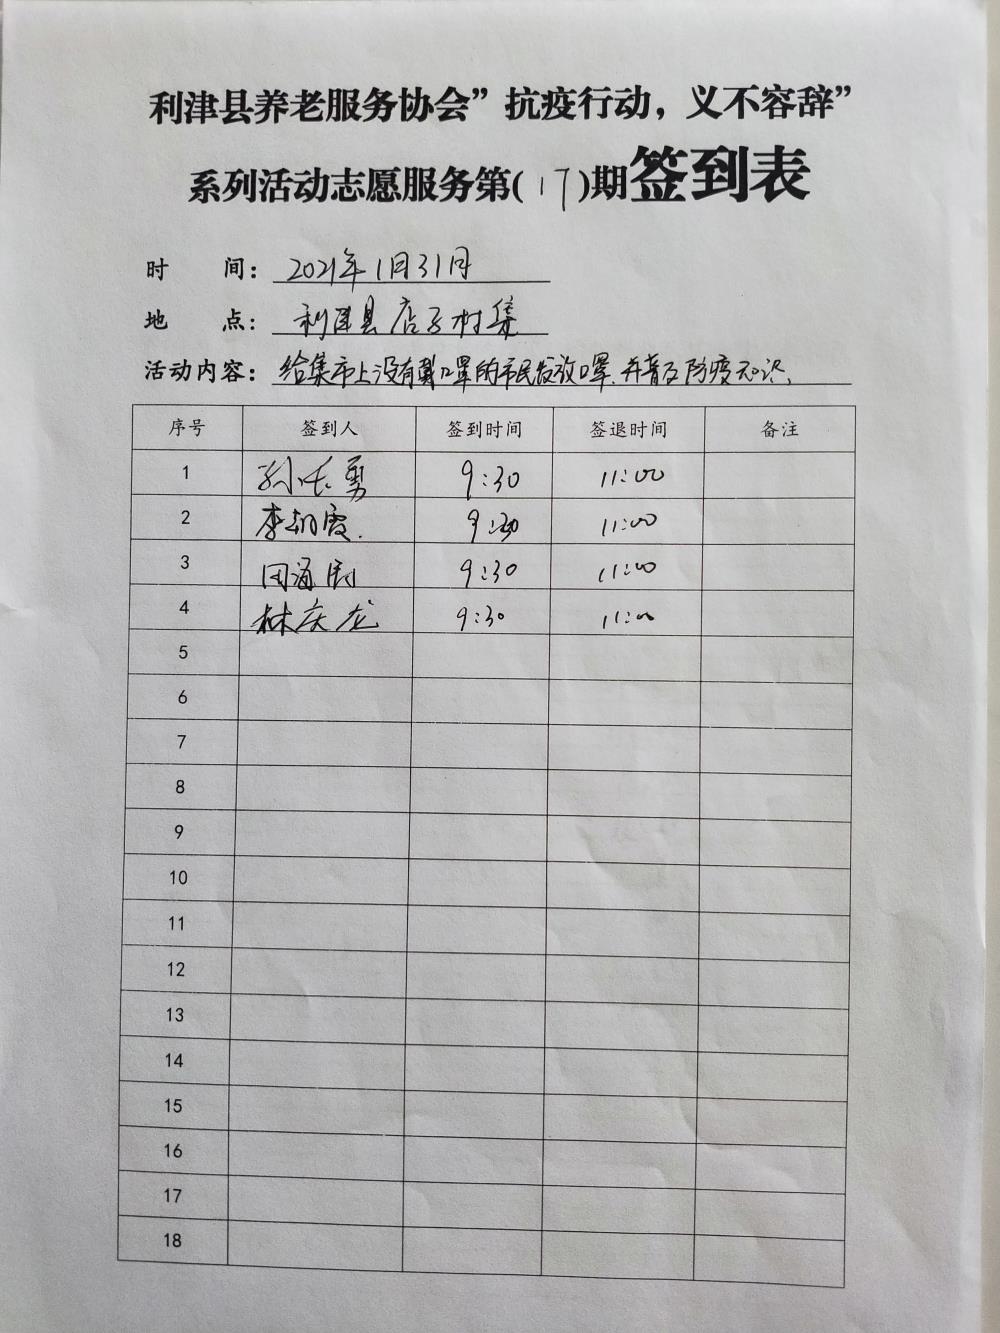 利津县养老服务协会”抗疫行动，义不容辞”
系列活动志愿服务第(17)期签到表
时 间：2021年1月31日
地 点：利津县店子村集
活动内容：给集市上没有戴口罩的市民发放口罩.并普及防疫知识.
序号 签到人 签到时间 签退时间 备注
1 孙长勇 9:30 11:00
2 李 霞. 9:30 11:00
3 9:30 11:00
4 林庆龙 9:30 11:00
5
6
7
8
9
10
11
12
13
14
15
16
17
18